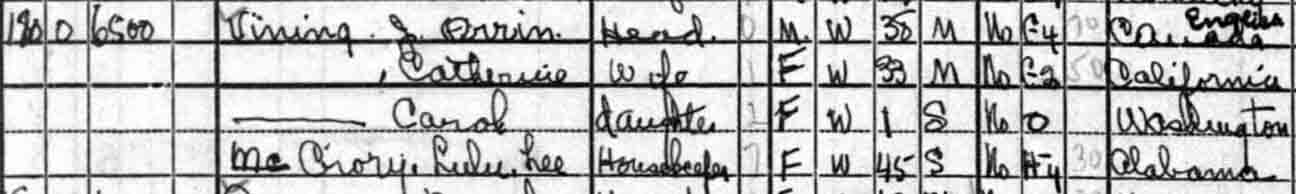 180 0 6500 Vining J. Orrin Head 0 M W 38 M No C-4 70 Canada English
, Catherine Wife 1 F W 33 M No C-3 50 California
—— Carol daughter 2 F W 1 S No 0 Washington
Mc Crory, Lulu Lee Housekeeper 7 F W 45 S No H-4 30 Alabama